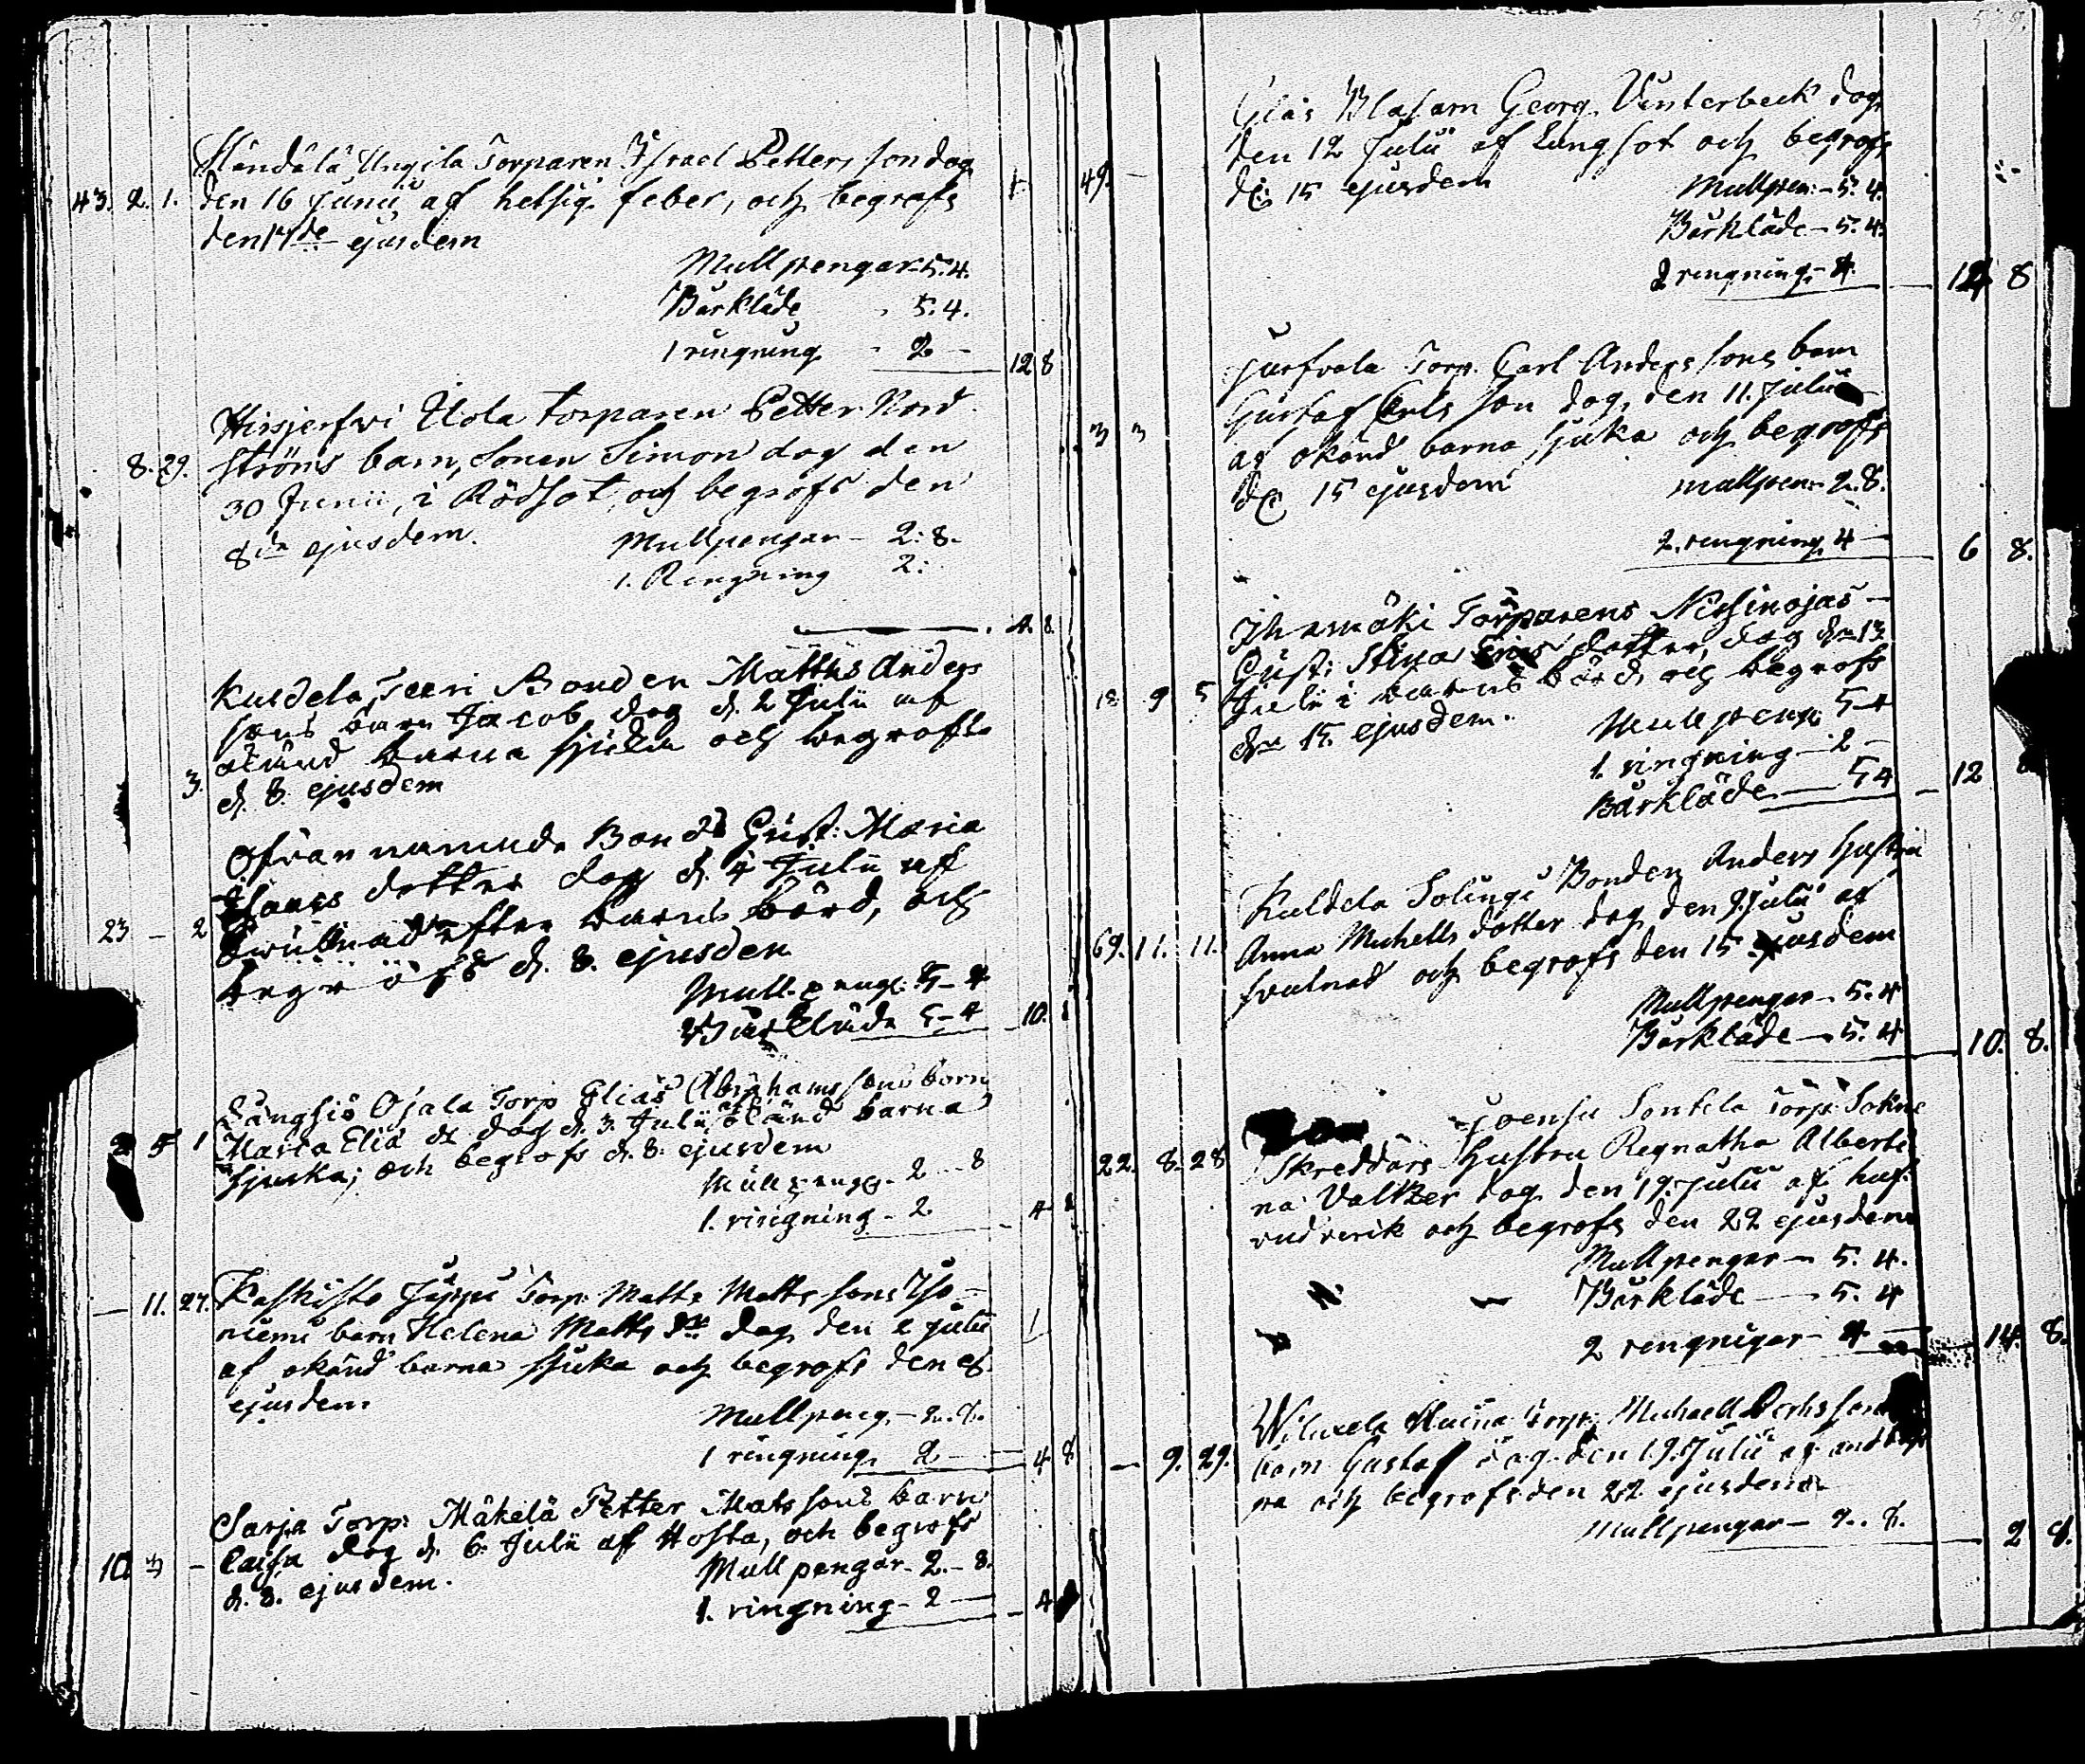 Händälä Ungila Torparen Israel Petters son dog
43. 2. 1. den 16 Junii af hetsig feber, och begrafs
den 17de ejusdem
Mullpengar 5.4.
Bårkläde 5.4.
1 ringning - 2 - 12 8
Hirsjerfvi Uola torparen Petter Nord
8. 29. ströms barn, sonen Simon dog den
30 Junii, i Rödsot, och begrofs den
8de ejusdem.
Mullpengar - 2: 8.
1. Ringning 2:
4. 8.
Kuldela Teeri Bonden Matths Anders
sons barn Jacob dog d. 2 Julii af
okänd barna sjuka och begrofs
3. d. 8. ejusdem
Ofvan namnde Bonds Hust: Maria
Isaacs dotter dog d. 4 Julii af
23 - 2 Swullnad efter barns börd, och
begrofs d. 8. ejusdem
Mull penge: 5-4
Bårkläde 5-4 10.
Långsiö Ojala Torp Elias Abrahams sons barn
2 5 1 Maria Elia dr dog d. 3. Julii af okänd barna
sjuka; och begrofs d. 8. ejusdem
Mullpeng. 2 - 8
1. ringning - 2 4 8
Koskisto Juppi Torp: Matts Matts sons Iso-
- 11. 27. niemi barn Helena Matts dr dog den 2 Julii
af okänd barna sjuka och begrofs den 8
ejusdem
Mullpeng - 2. 8.
1 ringning 2 4 8
Sarja Torp: Mäkelä Petter Mats sons barn
10 3 - Caisa dog d. 6. Julii af Hosta, och begrofs
d. 8. ejusdem.
Mull pengar - 2. - 8.
1. ringning - 2 4
Glas Blasarn Georg Vinterbeck dog
49. - den 12 Julii af Lungsot och begrofs
d: 15 ejusdem
Mullpen: - 5. 4.
Bårkläde - 5. 4.
2 ringning - 4. 14 8
Torp. Carl Anders sons barn
3 3 Gustaf Carls son dog den 11. Julii
af okänd barna sjuka och begrofs
d: 15 ejusdem
mullpen - 2. 8.
2. ringning 4 6 8.
Ihamäki Torparens Nissinojas
Hust: Stina Erics dotter, dog den 13
18 9 5 Julii i barns börd, och begrofs
den 15. ejusdem.
Mullpeng: 5 4
1. ringning - 2 -
Bårkläde 5 4 12 8
Kuldela Solingi Bonden Anders hustru
69. 11. 11. Anna Michells dotter dog den 9 Julii af
svulnad och begrofs den 15 ejusdem
Mullpengar - 5. 4
Bårkläde - 5. 4 10. 8.
Joensu Sontela Torp: Sokne
22. 8. 28 Skreddars Hustru Regnatha Alberti
na Valtker dog den 19. Julii af huf
vudverk och begrofs den 22 ejusdem
Mullpengar - 5. 4.
Bårkläde - 5. 4
2 rengnigar - 4 14. 8.
Torp: Michaell
- 9. 29. barn Gustaf dog den 19. Julii af andtäp
pa och begrofs den 22 ejusdem
Mullpengar - 2. 8. 2 8.